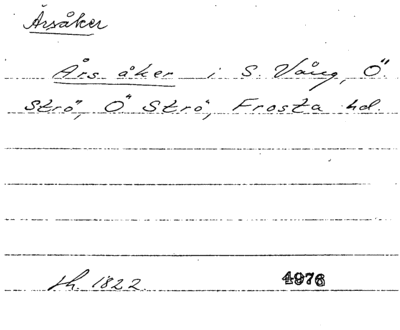 Årsåker
Års åker i S. Vång, Ö
Strö, Ö Strö, Frosta hd.
sh. 1822 4976